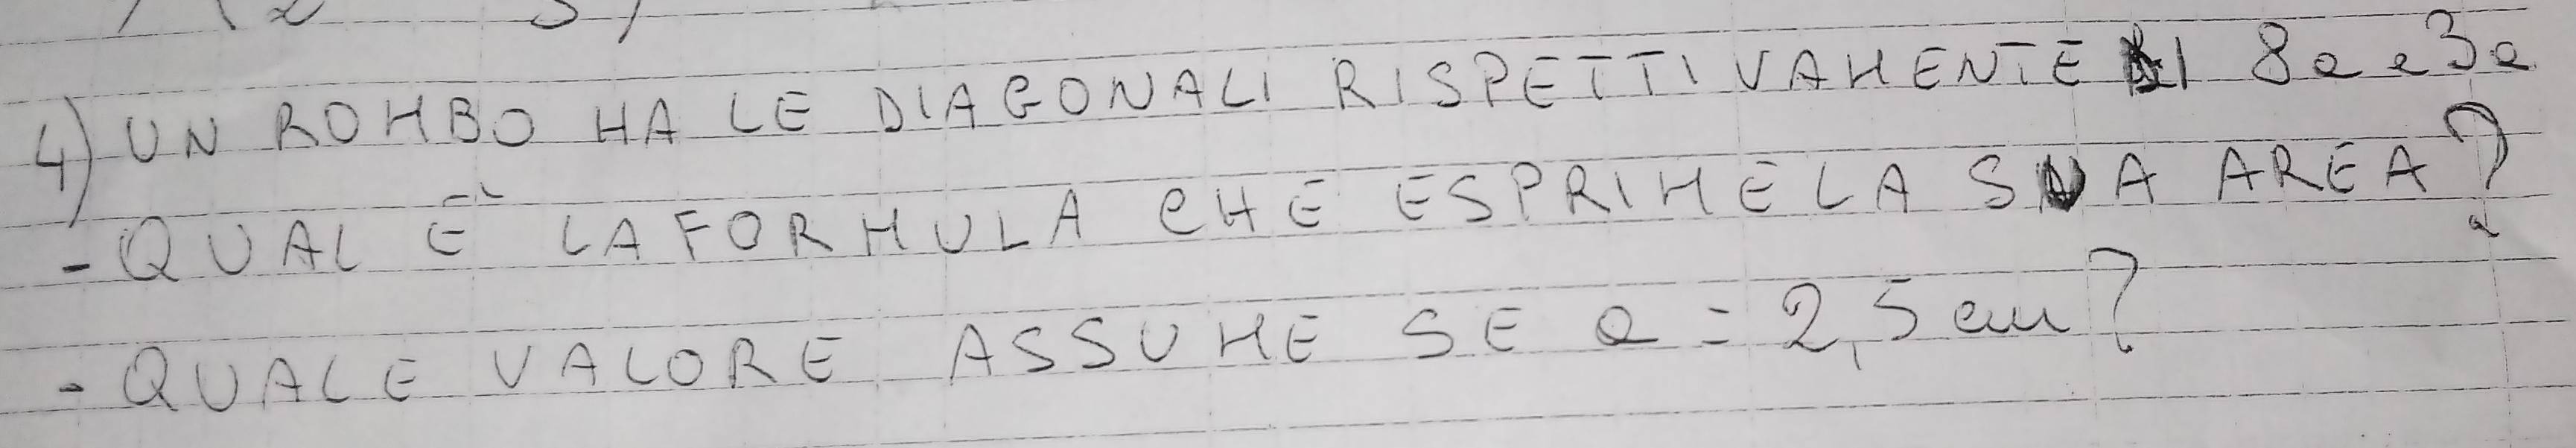 4) UN ROMBO HA LE DIAGONALI RISPETTIVAMENTE DI 8a e 3a
- QUAL È LA FORMULA CHE ESPRIME LA SUA AREA?
- QUALE VALORE ASSUME SE a = 2,5 cm?